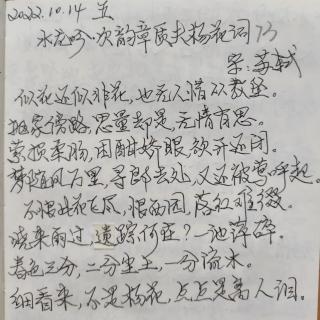 2022.10.14 五
水龙吟·次韵章质夫杨花词 73
宋:苏轼
似花还似非花,也无人惜从教坠。
抛家傍路,思量却是,无情有思。
萦损柔肠,困酣娇眼,欲开还闭。
梦随风万里,寻郎去处,又还被莺呼起。
不恨此花飞尽,恨西园,落红难缀。
晓来雨过,遗踪何在?一池萍碎。
春色三分,二分尘土,一分流水。
细看来,不是杨花,点点是离人泪。